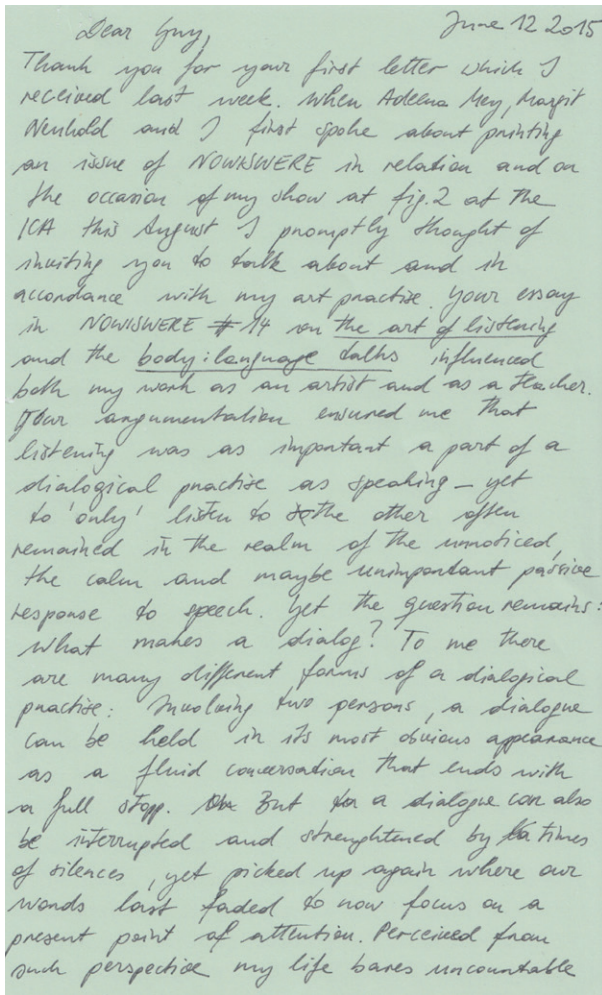 June 12 2015
Dear Guy,
Thank you for your first letter which I
received last week. When Adeena Mey, Margit
Neuhold and I first spoke about printing
an issue of NOWISWERE in relation and on
the occasion of my show at fig.2 at the
ICA this August I promptly thought of
inviting you to talk about and in
accordance with my art practise. Your essay
in NOWISWERE #14 on the art of listening
and the body:language talks influenced
both my work as an artist and as a teacher.
Your argumentation ensured me that
listening was as important a part of a
dialogical practise as speaking – yet
to 'only' listen to the other often
remained in the realm of the unnoticed,
the calm and maybe unimportant passive
response to speech. Yet the question remains:
what makes a dialog? To me there
are many different forms of a dialogical
practise: Involving two persons, a dialogue
can be held in its most obvious appearance
as a fluid conversation that ends with
a full stopp. But a dialogue can also
be interrupted and strenghtened by times
of silences, yet picked up again where our
words last faded to now focus on a
present point of attention. Perceived from
such perspective my life bares uncountable